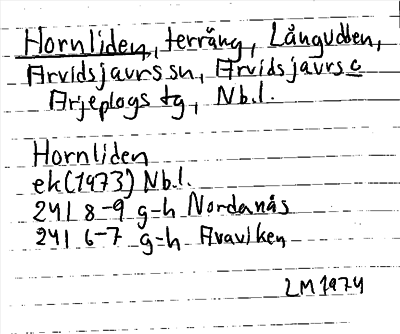 Hornliden, terräng, Långudden,
Arvidsjaurs sn, Arvidsjaurs o
Arjeplogs tg, Nb.l.
Hornliden
ek (1973) Nb.l.
24I 8-9 g-h Nordanås
24I 6-7 g-h Avaviken
LM 1974